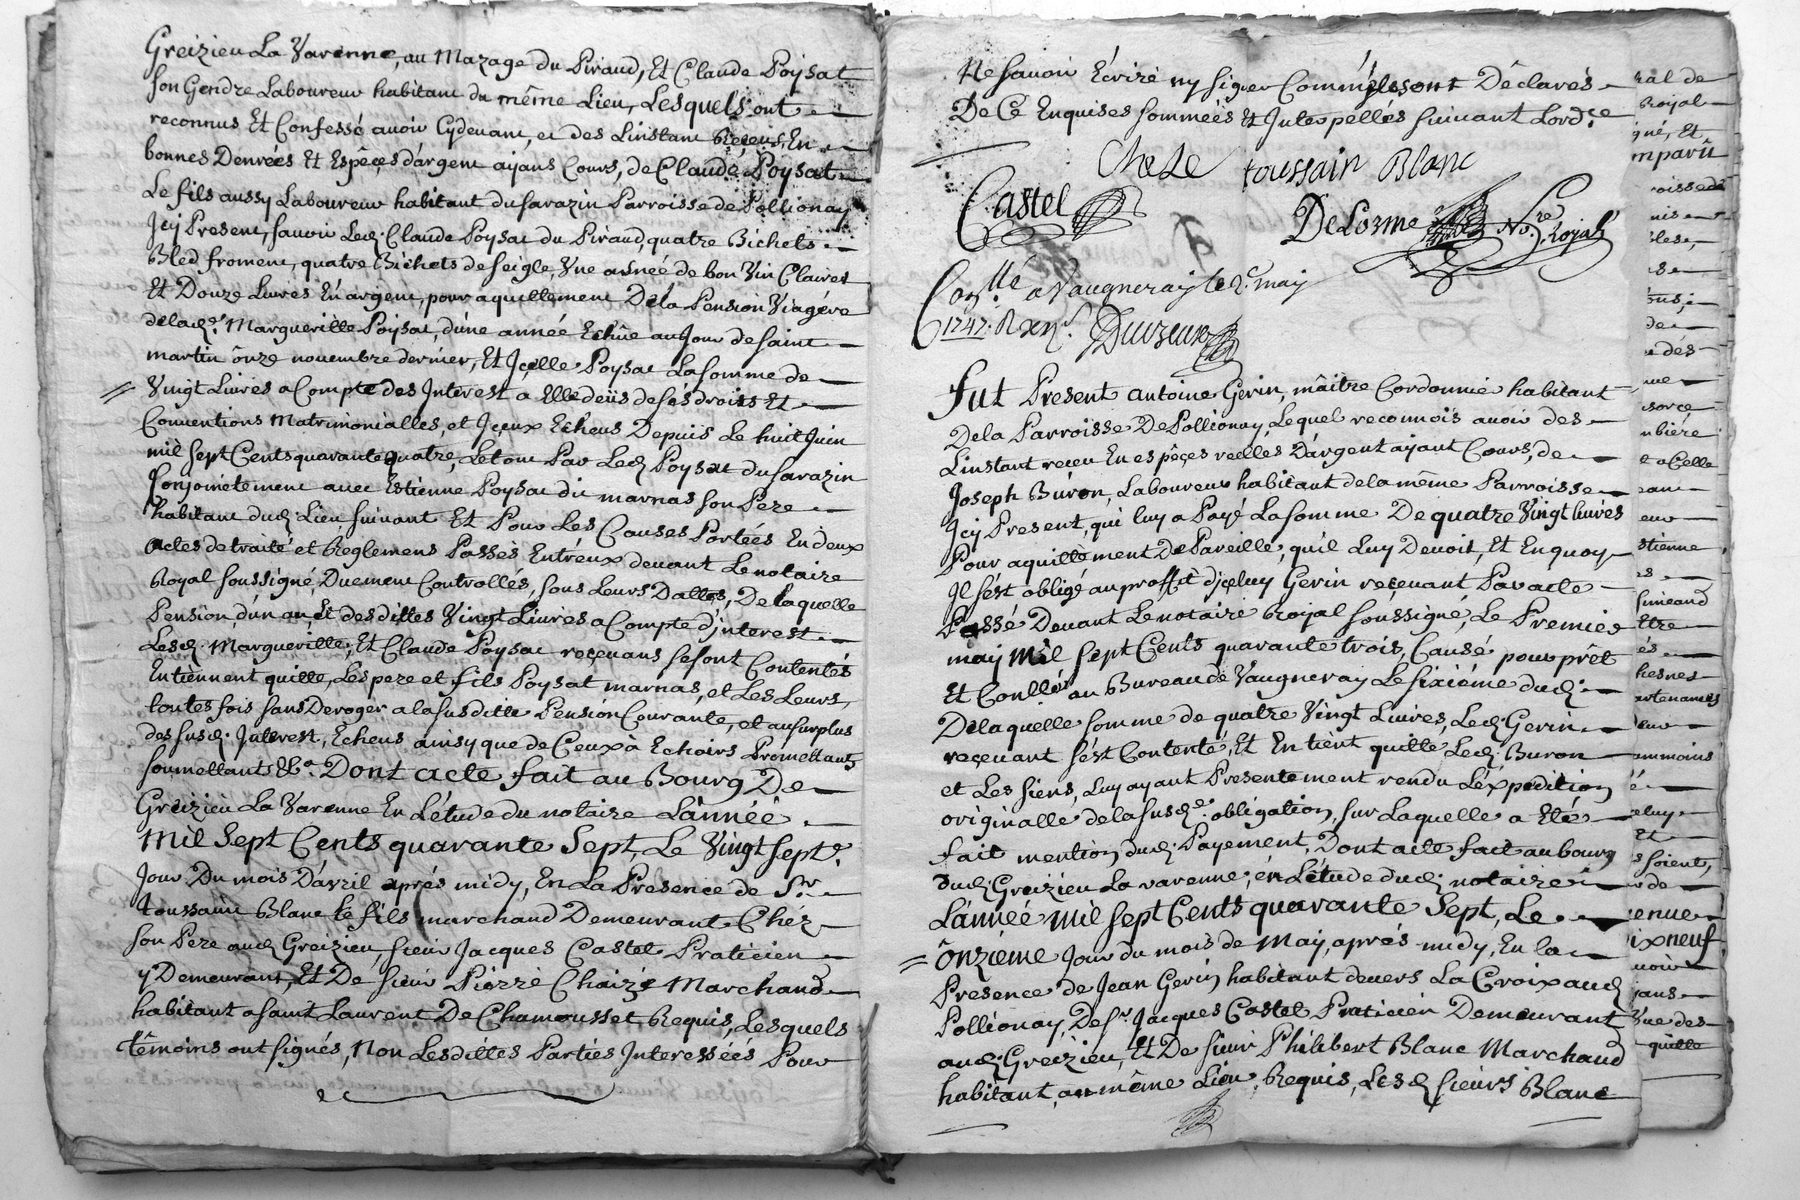 Greizieu La Varenne, au Mazage du Piraud, Et Claude Poysat
son Gendre Laboureur habitant du même Lieu, Lesquels ont
reconnus Et Confessé avoir Cydevant, et des Linstant Reçeus, En
bonnes Denrées Et Espêçes d'argent ayans Cours, de Claude Poysat
Le fils aussy Laboureur habitant du Sarazin Parroisse de Pollionay
Jcy Present, sauoir Led. Claude Poysat du Piraud, quatre Bichets
Bled froment, quatre Bichets de seigle, Vne asnéé de bon Vin Clairet
Et Douze Livres En argent, pour aquittement De la Pension Viagére
de lad.e Margueritte Poysat, d'une année Echûe au Jour de saint
martin ônze novembre dernier, Et Jçelle Poysat La somme de
Vingt Livres a Compte des Jnterest a Elle deüs de sés droits Et
Conuentions Matrimonialles, et Jçeux Echeus Depuis Le huit Juin
mil sept Cents quarante quatre, Le tout Par Led. Poysat du Sarazin
Conjointement auec Estienne Poysat dit marnas son Pere
habitant dud. Lieu suiuant Et Pour Les Causes Portéés En deux
actes de traité et Reglemens Passés Entréux deuant Le notaire
Royal soussigné, Duement Controllés, sous Leurs Dattes, De laquelle
Pension d'ún an, Et desdittes Vingt Livres a Compte d'jnterest
Lesd. Margueritte, Et Claude Poysat reçeuans se sont Contentés
En tiennent quitte, Les pere et fils Poysat marnas, et Les Leurs,
toutes fois sans Deroger a la susditte Pension Courante, et au surplus
des susd. Jnterest, Echeus ainsy que de Ceux à Echoirs Promettants
soumettants &c.a Dont acte fait au Bourg De
Greizieu La Varenne En L'étude du notaire L'annéé
Mil Sept Cents quarante Sept, Le Vingt sept.e
Jour Du mois D'avril aprés midy, En La Presence de S.r
Toussaint Blanc le fils marchand Demeurant Chéz
son Pere aud. Greizieu, sieur Jacques Castel Praticien
y Demeurant, Et De sieur Piérre Chaize Marchand
habitant a saint Laurent De Chamousset Requis, Lesquels
têmoins ont signés, Non Lesdittes Parties Jnteresséés Pour
Ne sauoir Écrire ny signer Comm'jls ont Déclarés
De Ce Enquises somméés Et Jnterpellés suiuant Lord.ce
Toussain Blanc
Castel
DeLorme N.re Royal
Con.llé a Vaugneray le d. may
1747. Rx
Fut Present Antoine Gerin, mâitre Cordonnié habitant
De la Parroisse De Pollionay, Lequel reconnois auoir des
L'instant receu En espêçes reelles D'argent ayant Cours, de
Joseph Buron, Laboureur habitant de la même Parroisse
Jcy Present, qui luy a Payé La somme De quatre Vingt livres
Pour aquittement De Pareille, qu'il Luy Devoit, Et En quoy
Jl s'ést obligé au proffit d'jçeluy Gerin reçeuant Par acte
Passé Devant Le notaire Royal soussigné, Le Premier
may Mil sept Cents quarante trois, Causé pour prêt
Et Conllé au Bureau de Vaugneray Le sixiéme dud.
De laquelle somme de quatre Vingt Livres, Led. Gerin
reçeuant s'ést Contenté, Et En tient quitte, Led. Buron
et Les siens, Luy ayant Presentement rendu L'éxpedition
originalle de la susd.e obligation, sur Laquelle a Eté
fait mention dud. Payement, Dont acte fait au bourg
dud. Greizieu La varenne, én L'étude dud. notaire
L'annéé mil sept Cents quarante Sept, Le
ônziême Jour du mois de May, aprés midy, En la
Presence de Jean Gerin habitant devers La Croix aud.
Pollionay, De s.r Jacques Castel Praticien Demeurant
aud. Greizieu, Et De sieur Philibert Blanc Marchand
habitant, au même Lieu, Requis, Lesd. sieurs Blanc